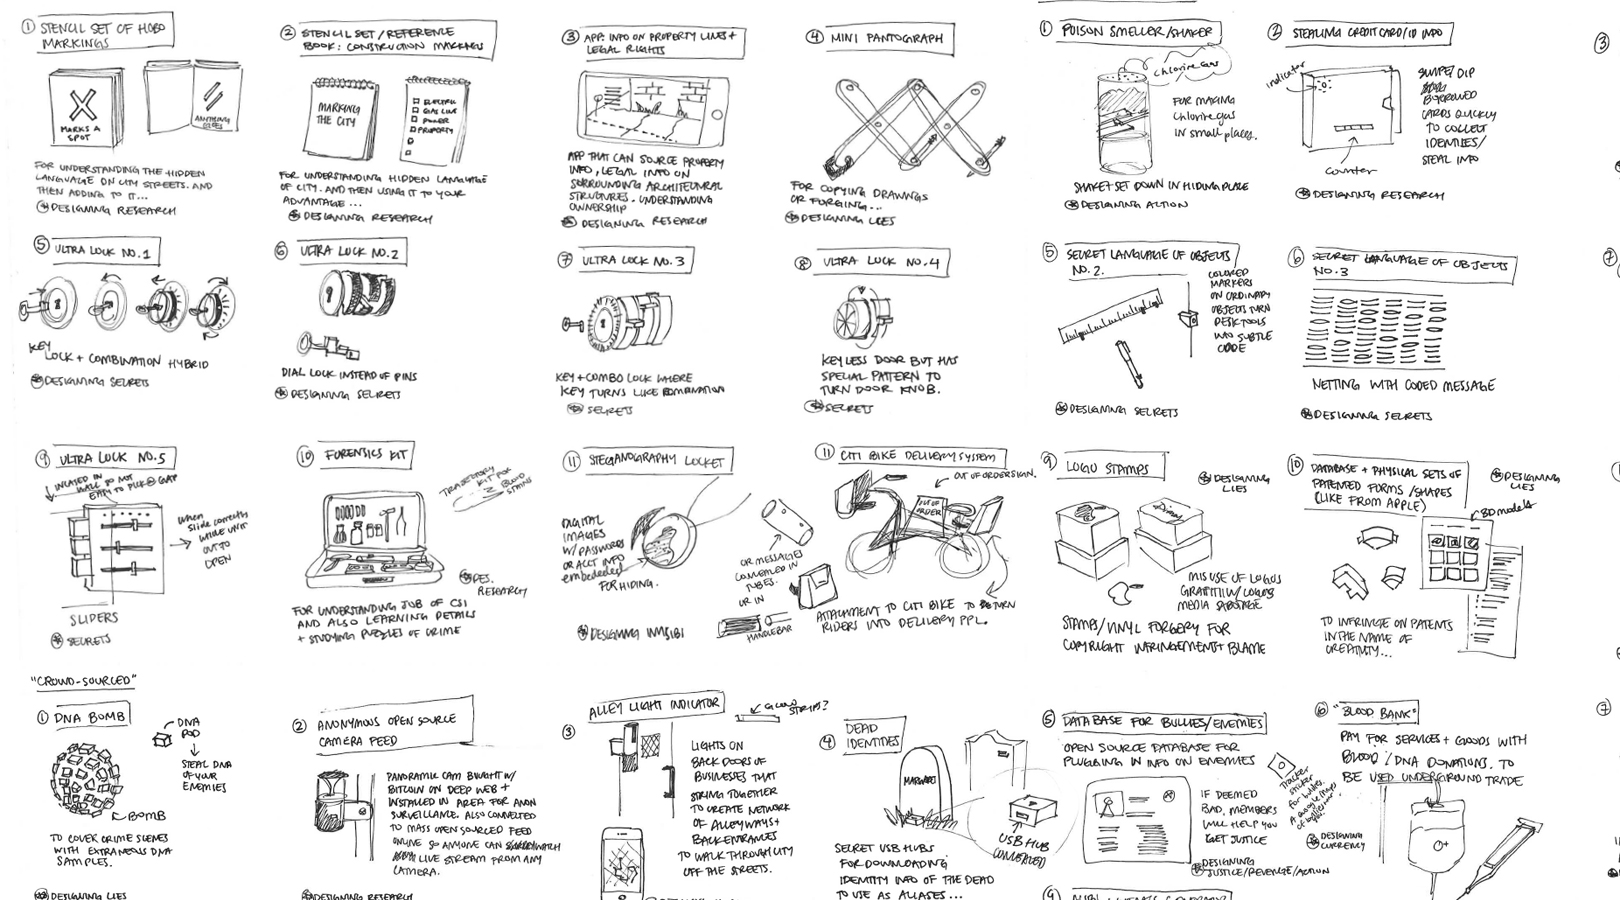 ① STENCIL SET OF HOBO
MARKINGS
MARKS A
SPOT
FOR UNDERSTANDING THE HIDDEN
LANGUAGE ON CITY STREETS. AND
THEN ADDING TO IT...
DESIGNING RESEARCH
② STENCIL SET / REFERENCE
BOOK: CONSTRUCTION MARKINGS
MARKING
THE CITY
ELECTRIC
GAS LINE
POWER
PROPERTY
FOR UNDERSTANDING HIDDEN LANGUAGE
OF CITY. AND THEN USING IT TO YOUR
ADVANTAGE...
DESIGNING RESEARCH
③ APP: INFO ON PROPERTY LINES +
LEGAL RIGHTS
APP THAT CAN SOURCE PROPERTY
INFO, LEGAL INFO ON
SURROUNDING ARCHITECTURAL
STRUCTURES. UNDERSTANDING
OWNERSHIP
DESIGNING RESEARCH
④ MINI PANTOGRAPH
FOR COPYING DRAWINGS
OR FORGING...
DESIGNING LIES
① POISON SMELLER/SHAKER
chlorine gas
FOR MAKING
chlorine gas
IN small places.
SHAKE + SET DOWN IN HIDING PLACE
DESIGNING ACTION
② STEALING CREDIT CARD/ID INFO
indicator
SWIPE/DIP
BORROWED
CARDS QUICKLY
TO COLLECT
IDENTITIES/
STEAL INFO
counter
DESIGNING RESEARCH
③
⑤ ULTRA LOCK NO. 1
KEY
LOCK + COMBINATION HYBRID
DESIGNING SECRETS
⑥ ULTRA LOCK NO. 2
DIAL LOCK INSTEAD OF PINS
DESIGNING SECRETS
⑦ ULTRA LOCK NO. 3
KEY + COMBO LOCK WHERE
KEY TURNS LIKE COMBINATION
SECRETS
⑧ ULTRA LOCK NO. 4
KEYLESS DOOR BUT HAS
SPECIAL PATTERN TO
TURN DOOR KNOB.
SECRETS
⑤ SECRET LANGUAGE OF OBJECTS
NO. 2.
COLORED
MARKERS
ON ORDINARY
OBJECTS TURN
DESK TOOLS
INTO SUBTLE
CODE
DESIGNING SECRETS
⑥ SECRET LANGUAGE OF OBJECTS
NO. 3
NETTING WITH CODED MESSAGE
DESIGNING SECRETS
⑦
⑨ ULTRA LOCK NO. 5
LOCATED IN
WALL SO NOT
EASY TO PICK @ GAP
When
slide correctly
whole unit
OUT TO
OPEN
SLIDERS
SECRETS
⑩ FORENSICS KIT
TRAJECTORY
KIT FOR
BLOOD
STAINS
DES.
RESEARCH
FOR UNDERSTANDING JOB OF CSI
AND ALSO LEARNING DETAILS
+ STUDYING PUZZLES OF CRIME
⑪ STEGANOGRAPHY LOCKET
DIGITAL
IMAGES
W/ PASSWORDS
OR ACCT INFO
embedded
FOR HIDING.
DESIGNING INVISIBI
⑪ CITI BIKE DELIVERY SYSTEM
OUT OF ORDER SIGN.
OUT OF
ORDER
OR MESSAGES
CONCEALED IN
TUBES.
OR IN
HANDLEBAR
ATTACHMENT TO CITI BIKE TO TURN
RIDERS INTO DELIVERY PPL.
⑨ LOGO STAMPS
DESIGNING
LIES
MISUSE OF LOGOS
GRAFFITI W/ LOGOS
MEDIA SABOTAGE
STAMPS/VINYL FORGERY FOR
COPYRIGHT INFRINGEMENT + BLAME
⑩ DATABASE + PHYSICAL SETS OF
PATENTED FORMS/SHAPES
(LIKE FROM APPLE)
DESIGNING
LIES
3D models
TO INFRINGE ON PATENTS
IN THE NAME OF
CREATIVITY...
"CROWD-SOURCED"
① DNA BOMB
DNA
POD
STEAL DNA
OF YOUR
ENEMIES
BOMB
TO COVER CRIME SCENES
WITH EXTRANEOUS DNA
SAMPLES.
DESIGNING LIES
② ANONYMOUS OPEN SOURCE
CAMERA FEED
PANORAMIC CAM BOUGHT W/
BITCOIN ON DEEP WEB +
INSTALLED IN AREA FOR ANON
SURVEILLANCE. ALSO CONNECTED
TO MASS OPEN SOURCED FEED
ONLINE SO ANYONE CAN WATCH
LIVE STREAM FROM ANY
CAMERA.
DESIGNING RESEARCH
③ ALLEY LIGHT INDICATOR
GLOW STRIPS?
LIGHTS ON
BACK DOORS OF
BUSINESSES THAT
STRING TOGETHER
TO CREATE NETWORK
OF ALLEYWAYS +
BACK ENTRANCES
TO WALK THROUGH CITY
OFF THE STREETS.
④ DEAD
IDENTITIES
MARGARET
USB HUB
(CONCEALED)
SECRET USB HUBS
FOR DOWNLOADING
IDENTITY INFO OF THE DEAD
TO USE AS ALIASES...
⑤ DATABASE FOR BULLIES/ENEMIES
OPEN SOURCE DATABASE FOR
PLUGGING IN INFO ON ENEMIES
IF DEEMED
BAD, MEMBERS
WILL HELP YOU
GET JUSTICE
Tracker
sticker
For bullies.
DESIGNING
JUSTICE/REVENGE/ACTION
⑥ "BLOOD BANK"
PAY FOR SERVICES + GOODS WITH
BLOOD/DNA DONATIONS. TO
BE USED UNDERGROUND TRADE
DESIGNING
CURRENCY
O+
⑦
⑨